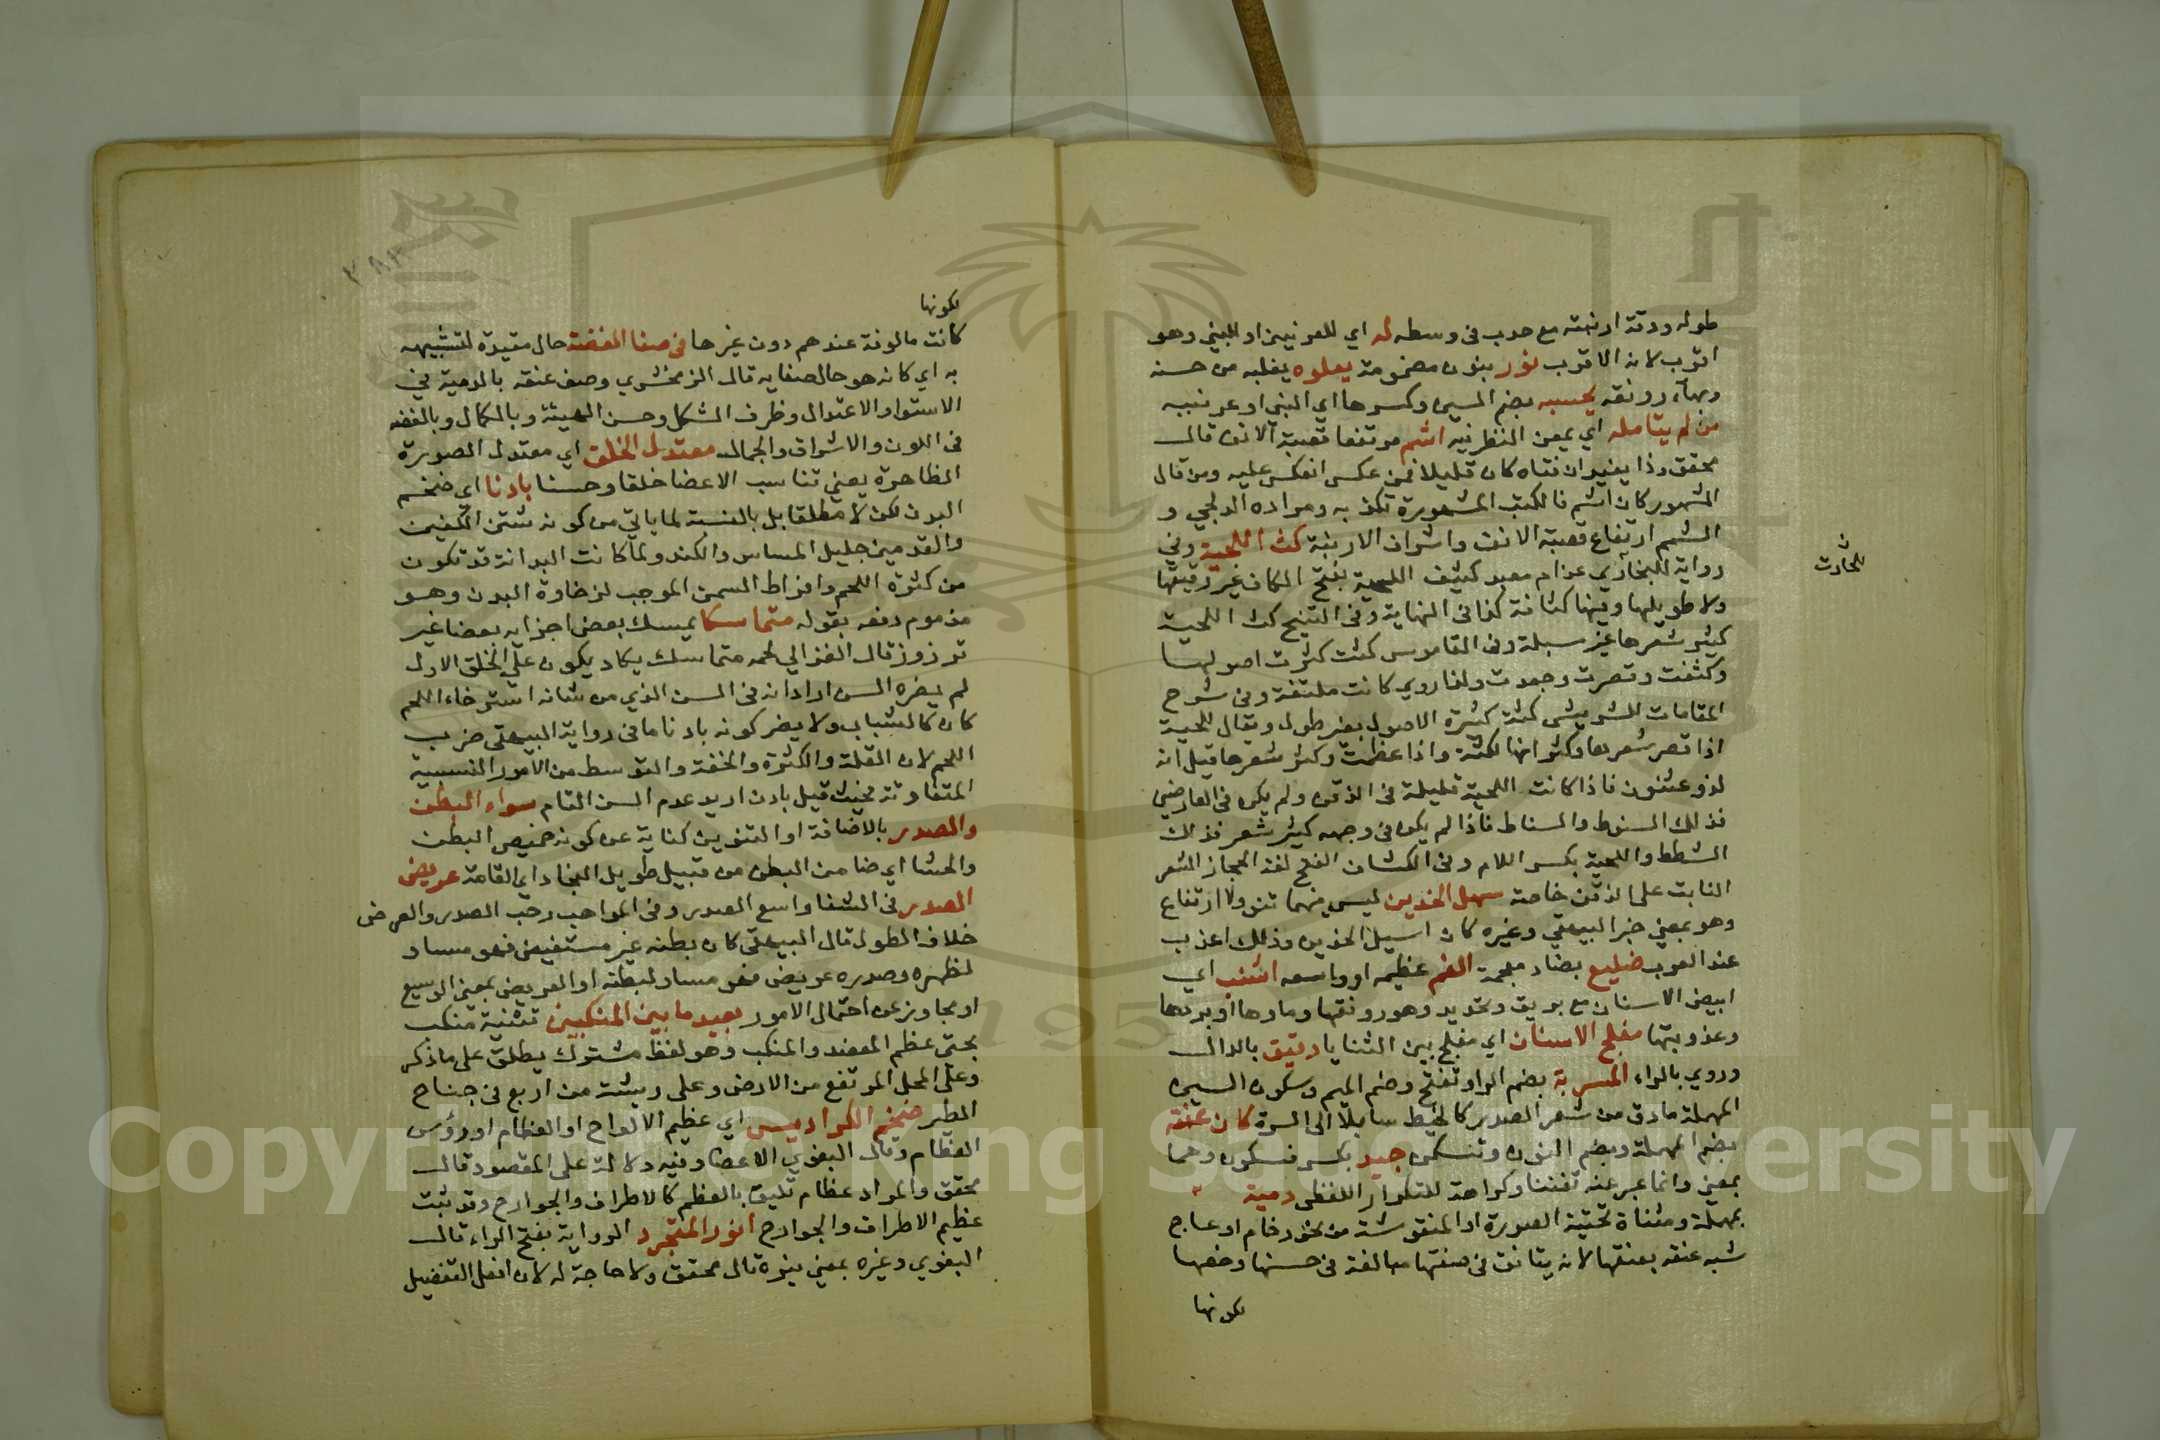 طوله ودقة ارنبته مع حدب فى وسطه له اي للعرنين او البني وهو
اقرب لانه الاقرب نور بنون مضمومة يعلوه يغلبه من حسنه
وبهاء رونقه يحسبه بضم السين وكسرها اي النبي او عرنينه
من لم يتامله اي يمعن النظر فيه اشم مرتفعا قصبة الانف قال
محقق وذا يفيد ان قناه كان قليلا فمن عكس انعكس عليه ومن قال
المشهور كان اشم فالكتب المشهورة تكذبه ومراده الدلجي و
الشمم ارتفاع قصبة الانف واشراف الارنبة كث اللحية وفي
رواية للبخاري عن ام معبد كثيف اللحية بفتح الكاف غير دقيقها
ولا طويلها وفيها كثافة كذا فى النهاية وفى التنقيح كث اللحية
كثير شعرها غير سبلة وفى القاموس كثت كثرت اصولها
وكثفت وقصرت وجعدت ولذا روي كانت ملتفة وفى شرح
المقامات للشريشي كثة كثيرة الاصول بغير طول ويقال للحية
اذا قصر شعرها وكثر انها لكثة واذا عظمت وكثر شعرها قيل انه
لذو عثنون فاذا كانت اللحية قليلة فى الذقن ولم يكن فى العارضين
فذلك السنوط والسناط فاذا لم يكن فى وجهه كثير شعر فذلك
الشطط واللحية بكسر اللام وفى الكشاف الفتح لغة الحجاز الشعر
النابت على الذقن خاصة سهل الخدين ليس فيهما نتو ولا ارتفاع
وهو بمعني خبر البيهقي وغيره كان اسيل الخدين وذلك اعذب
عند العرب ضليع بضاد معجمة الفم عظيمه او واسعه اشنب اي
ابيض الاسنان مع بريق وتحديد وهو رونقها وماوها او بردها
وعذوبتها مفلج الاسنان اي مفلج بين الثنايا دقيق بالدال
وروي بالراء المسربة بضم الراء وتفتح وضم الميم وسكون السين
المهملة مادق من شعر الصدر كالخيط سايلا الى السرة كان عنقه
بضم المهملة وبضم النون وتسكن جيد بكسر فسكون وهما
بمعني وانما عبر عنه تفننا وكراهة للتكرار اللفظي دمية
بمهملة ومثناة تحتية الصورة او المنقوشة من نحو رخام او عاج
شبه عنقه بعنقها لانه يتانق فى صنعتها مبالغة فى حسنها وخصها
لكونها
للحارث
٢٨٣
لكونها
كانت مالوفة عندهم دون غيرها فى صفا الفضة حال مقيدة لتشبيهه
به اي كانه هو حال صفايه قال الزمخشري وصف عنقه بالدمية في
الاستوا والاعتدال وظرف الشكل وحسن الهيئة وبالكمال وبالفضه
فى اللون والاشراق والجمال معتدل الخلق اي معتدل الصورة
الظاهرة يعني تناسب الاعضا خلقا وحسنا بادنا اي ضخم
البدن لكن لا مطلقا بل بالنسبة لما ياتي من كونه شثن الكفين
والقدمين جليل المساس والكتد ولما كانت البدانة قد تكون
من كثرة اللحم وافراط السمن الموجب لرخاوة البدن وهو
مذموم دفعه بقوله متماسكا يمسك بعض اجزايه بعضا غير
ترزوز قال الغزالي لحمه متماسك يكاد يكون على الخلق الاول
لم يضره السن اراد انه فى السن الذي من شانه استرخاء اللحم
كان كالشباب ولا يضر كونه بادنا ما فى رواية البيهقي ضرب
اللحم لان القلة والكثرة والخفة والتوسط من الامور النسبية
المتفاوتة فحيث قيل بادن اريد عدم السن التام سواء البطن
والصدر بالاضافة او التنوين كناية عن كونه خميص البطن
والحشا اي ضامن البطن من قبيل طويل النجاد اي القامة عريض
الصدر فى الشفا واسع الصدر وفى المواهب رحب الصدر والعرض
خلاف الطول قال البيهقي كان بطنه غير مستفيض فهو مساو
لظهره وصدره عريض فهو مساو لبطنه او العريض بمعني الوسيع
او مجاوز عن احتمال الامور بعيد ما بين المنكبين تثنية منكب
بحتى عظم العضد والمنكب وهو لفظ مشترك يطلق على ما ذكر
وعلى المحل المرتفع من الارض وعلى ريشة من اربع فى جناح
الطير ضخم الكراديس اي عظيم الالواح او العظام او رؤس
العظام وقال البغوي الاعضا وفيه دلالة على المقصود قال
محقق والمراد عظام تليق بالعظم كالاطراف والجوارح وقد ثبت
عظيم الاطراف والجوارح انور المتجرد الرواية بفتح الراء قال
البغوي وغيره بمعني نيره قال محقق ولا حاجة له لان افعل التفضيل